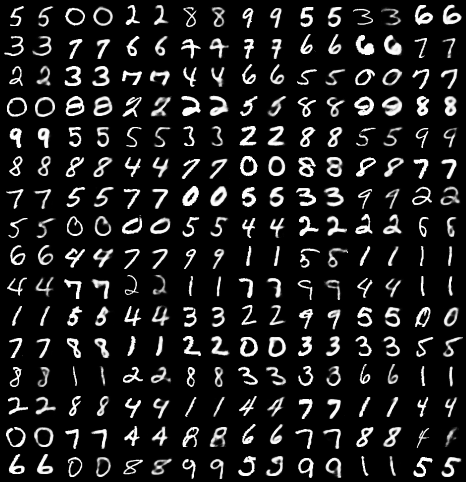 5 5 0 0 2 2 8 8 9 9 5 5 3 3 6 6
3 3 7 7 6 6 7 7 6 6 6 6 7 7
2 2 3 3 7 7 4 4 6 6 5 5 0 0 7 7
0 0 8 8 2 2 2 2 5 5 8 8 9 9 8 8
9 9 5 5 5 5 3 3 2 2 8 8 5 5 9 9
8 8 8 8 4 4 7 7 0 0 8 8 8 8 7 7
7 7 5 5 7 7 0 0 5 5 3 3 9 9 2 2
5 5 0 0 0 0 5 5 4 4 2 2 2 2 8 8
6 6 4 4 7 7 9 9 1 1 5 8 1 1 1 1
4 4 7 7 2 2 1 1 7 7 9 9 4 4 1 1
1 1 5 5 4 4 3 3 2 2 9 9 5 5 0 0
7 7 8 8 1 1 2 2 0 0 3 3 3 3 5 5
8 8 1 1 2 2 8 8 3 3 3 3 6 6 1 1
2 2 8 8 4 4 1 1 4 4 7 7 1 1 4 4
0 0 7 7 4 4 8 8 6 6 7 7 8 8
6 6 0 0 8 8 9 9 9 9 1 1 5 5